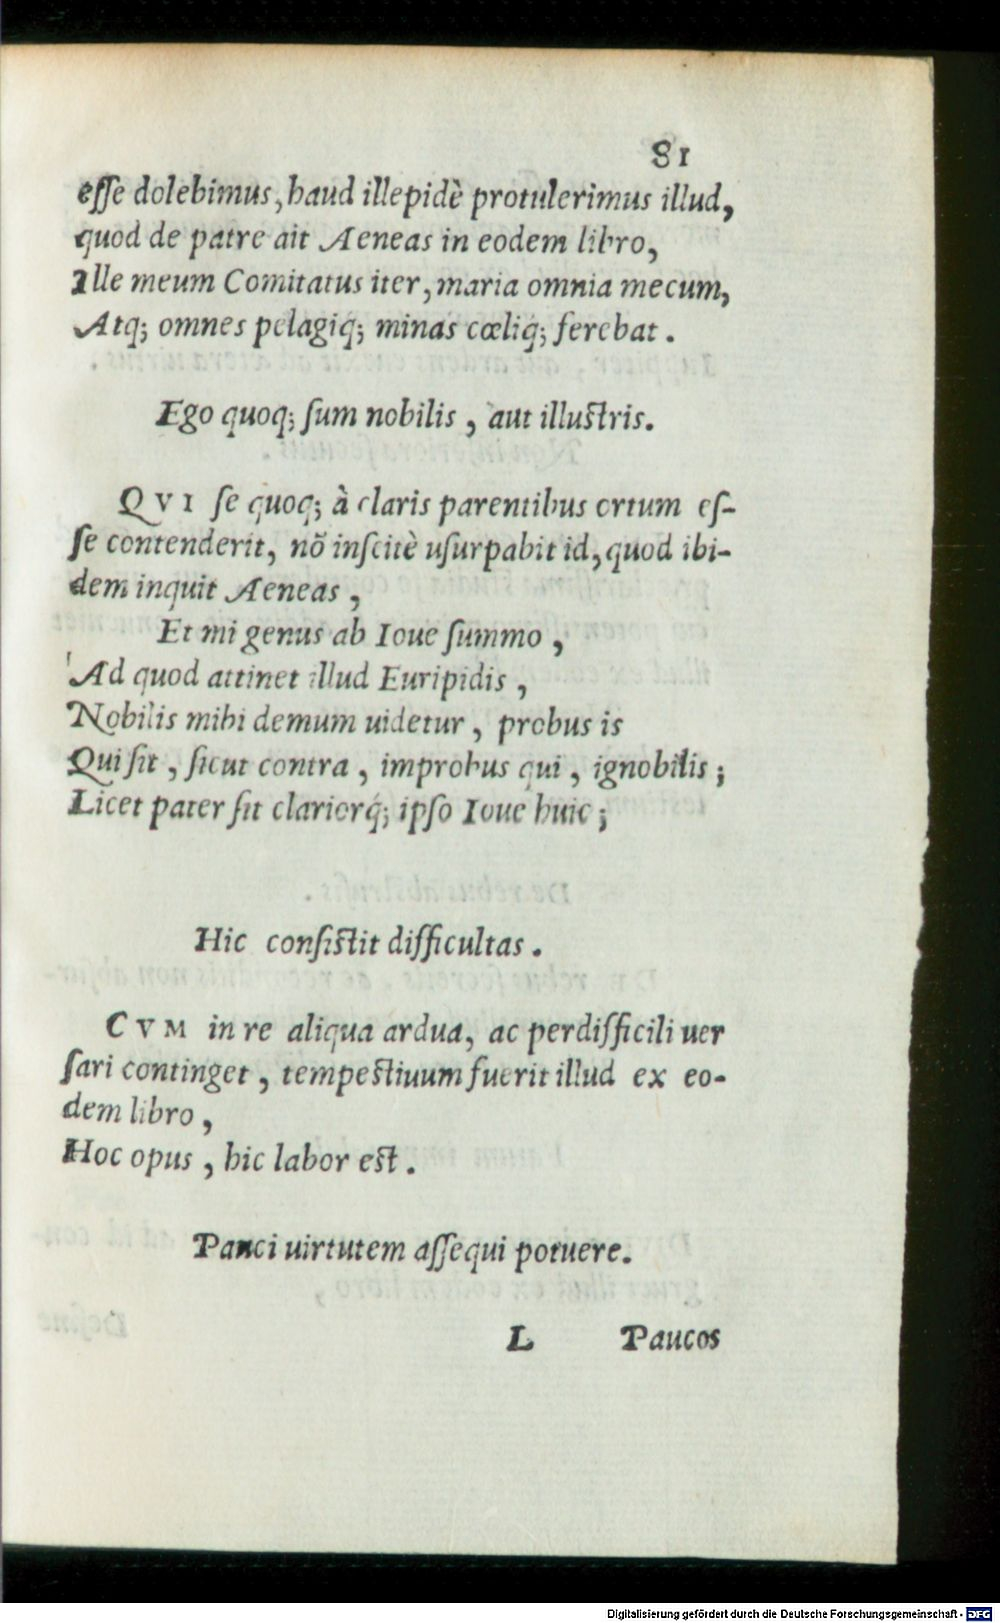 81
eſſe dolebimus, haud illepidè protulerimus illud,
quod de patre ait Aeneas in eodem libro,
Ille meum Comitatus iter, maria omnia mecum,
Atq; omnes pelagiq; minas cœliq́; ferebat.
Ego quoq; ſum nobilis, aut illuſtris.
QVI ſe quoq; à claris parentibus ortum eſ-
ſe contenderit, nō inſcitè uſurpabit id, quod ibi-
dem inquit Aeneas,
Et mi genus ab Ioue ſummo,
Ad quod attinet illud Euripidis,
Nobilis mihi demum uidetur, probus is
Qui ſit, ſicut contra, improbus qui, ignobilis;
Licet pater ſit clariorq́; ipſo Ioue huic;
Hic conſiſtit difficultas.
CVM in re aliqua ardua, ac perdifficili uer
ſari continget, tempeſtiuum fuerit illud ex eo-
dem libro,
Hoc opus, hic labor eſt.
Pauci uirtutem aſſequi potuere.
L Paucos
Digitalisierung gefördert durch die Deutsche Forschungsgemeinschaft - DFG